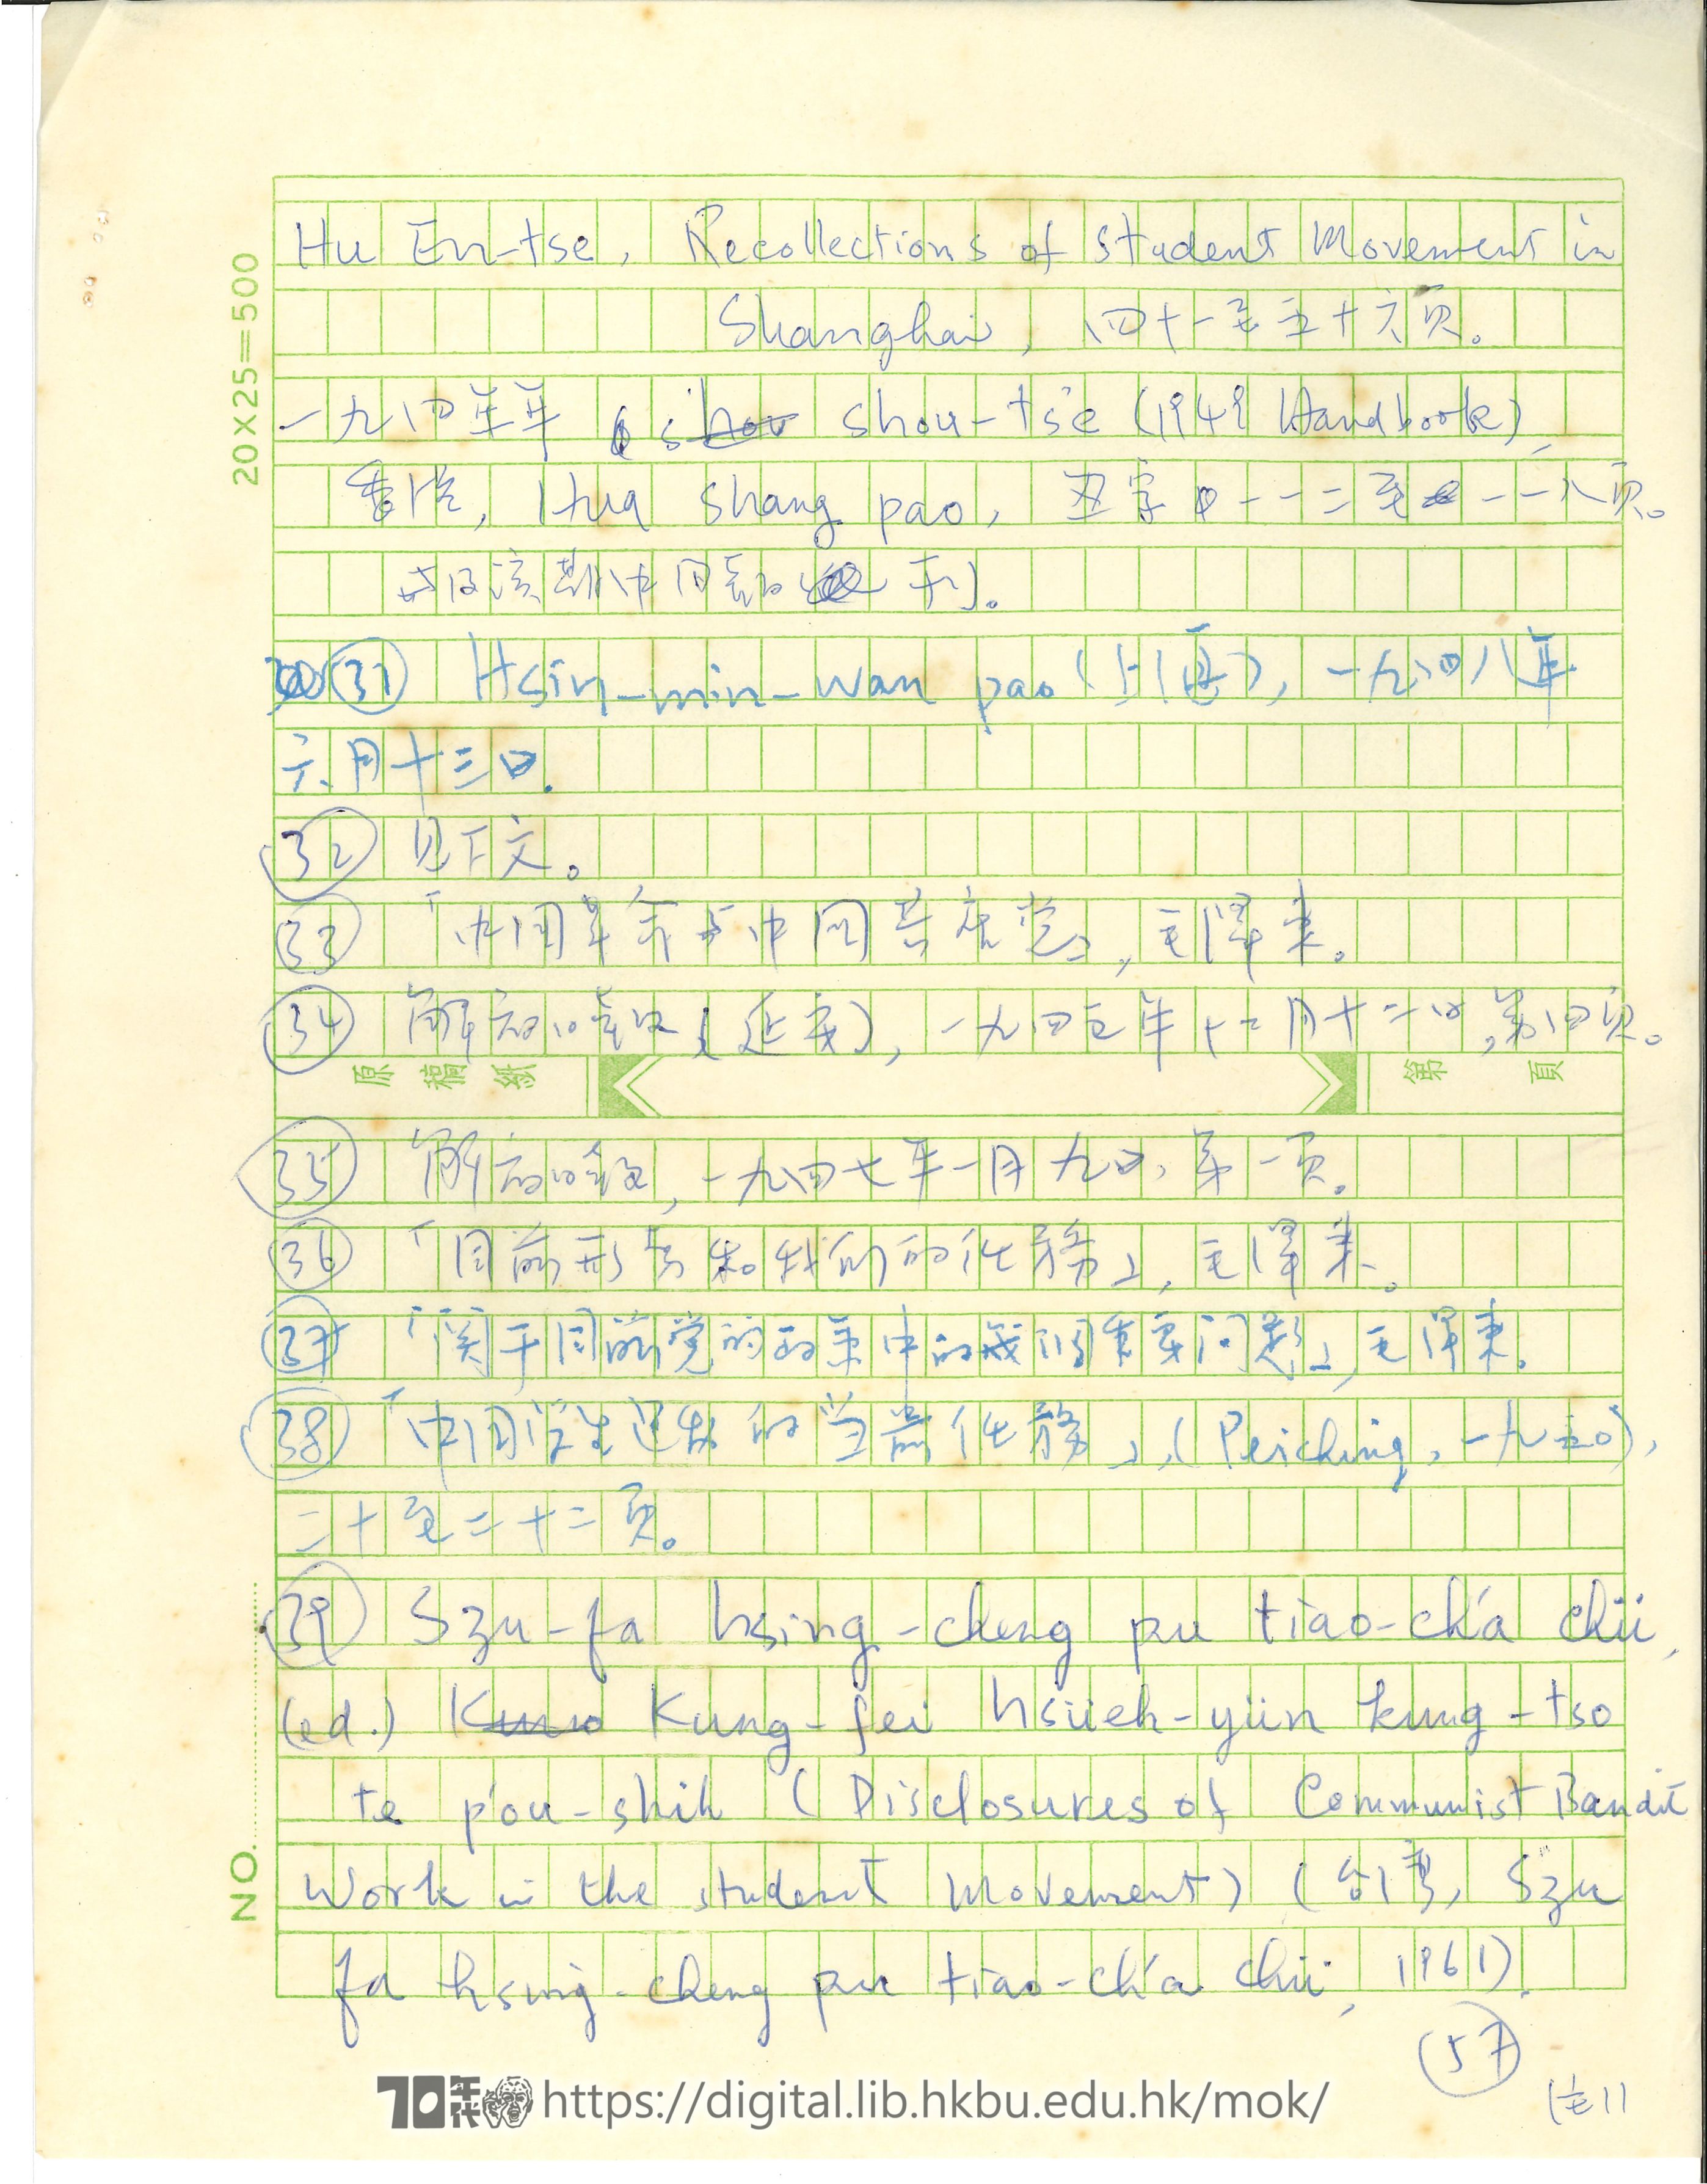 Hu En-tse, Recollections of Student Movement in
Shanghai, 四十一至五十六页。
一九四年年 shou-ts'e (1949 Handbook),
香港, Hua Shang pao, 丑字 一一二至 一一八页。
以及该期中同类的 刊。
20X25=500
㉛ Hsin-min-wan pao (上海), 一九四八年
六月十三日.
㉜ 见下文。
㉝ 「中国革命与中国共产党」, 毛澤东。
㉞ 解放日报 (延安), 一九四五年十二月十二日, 第四页。
原稿紙 第 頁
㉟ 解放日報, 一九四七年一月九日, 第一页。
㊱ 「目前形势和我们的任務」, 毛澤东。
㊲ 「関于目前党的政策中的幾個重要问题」, 毛澤東.
㊳ 「中国学生运动的当前任務」, (Peiching, 一九五〇),
二十至二十二页。
㊴ Szu-fa hsing-cheng pu tiao-ch'a chü,
(ed.) Kung-fei hsüeh-yün kung-tso
te p'ou-shih (Disclosures of Communist Bandit
Work in the Student Movement) (台湾, Szu
fa hsing-cheng pu tiao-ch'a chü, 1961).
NO.
57
70年代 https://digital.lib.hkbu.edu.hk/mok/